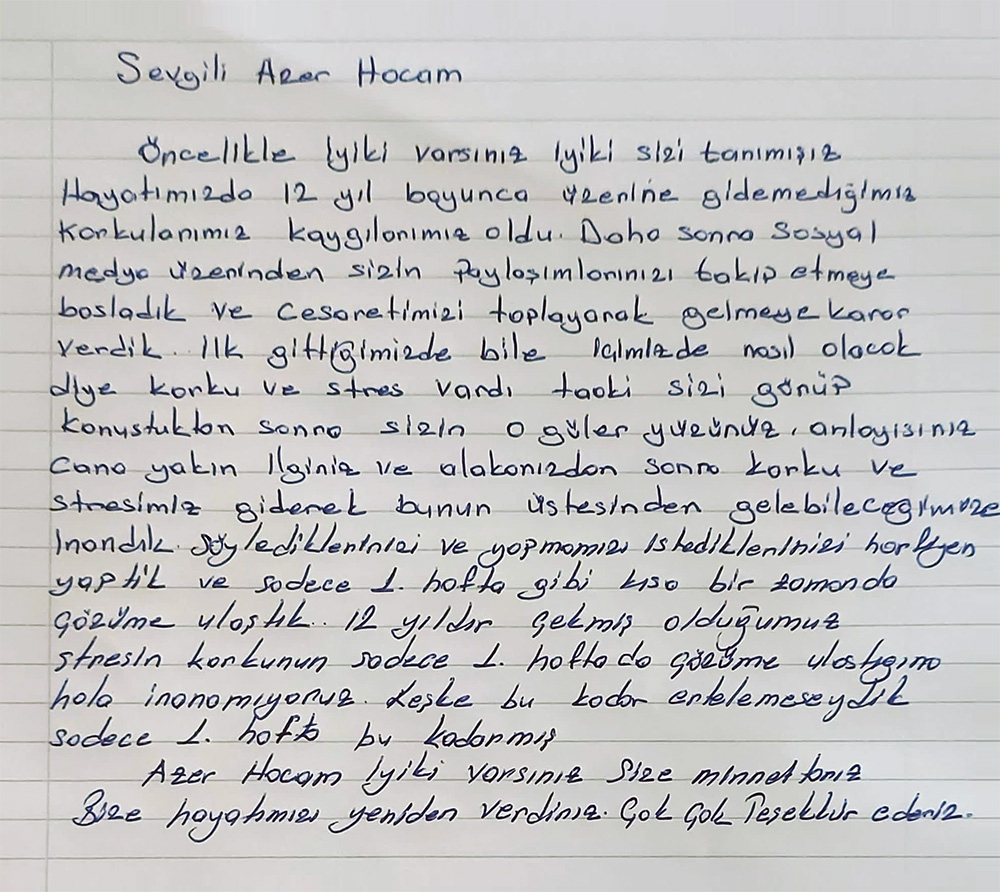 Sevgili Azer Hocam
Öncelikle İyiki varsınız İyiki sizi tanımışız
Hayatımızda 12 yıl boyunca üzerine gidemediğimiz
Korkularımız kaygılarımız oldu. Daha sonra Sosyal
medya üzerinden sizin Paylaşımlarınızı takip etmeye
basladık ve cesaretimizi toplayarak gelmeye karar
verdik. İlk gittiğimizde bile içimizde nasıl olacak
diye korku ve stres vardı taaki sizi görüp
Konustuktan sonra sizin o güler yüzünüz, anlayısınız
Cana yakın ilginiz ve alakanızdan sonra korku ve
stresimiz giderek bunun üstesinden gelebileceğimize
İnandık. Söylediklerinizi ve yapmamızı istediklerinizi harfiyen
yaptık ve sadece 1. hafta gibi kısa bir zamanda
çözüme ulaştık.. 12 yıldır çekmiş olduğumuz
stresin korkunun sadece 1. haftada çözüme ulastıgına
hala inanamıyoruz. Keşke bu kadar ertelemeseydik
sadece 1. hafta bu kadarmış
Azer Hocam İyiki varsınız Size minnettarız
Bize hayatımızı yeniden verdiniz. Çok Çok Teşekkür ederiz.